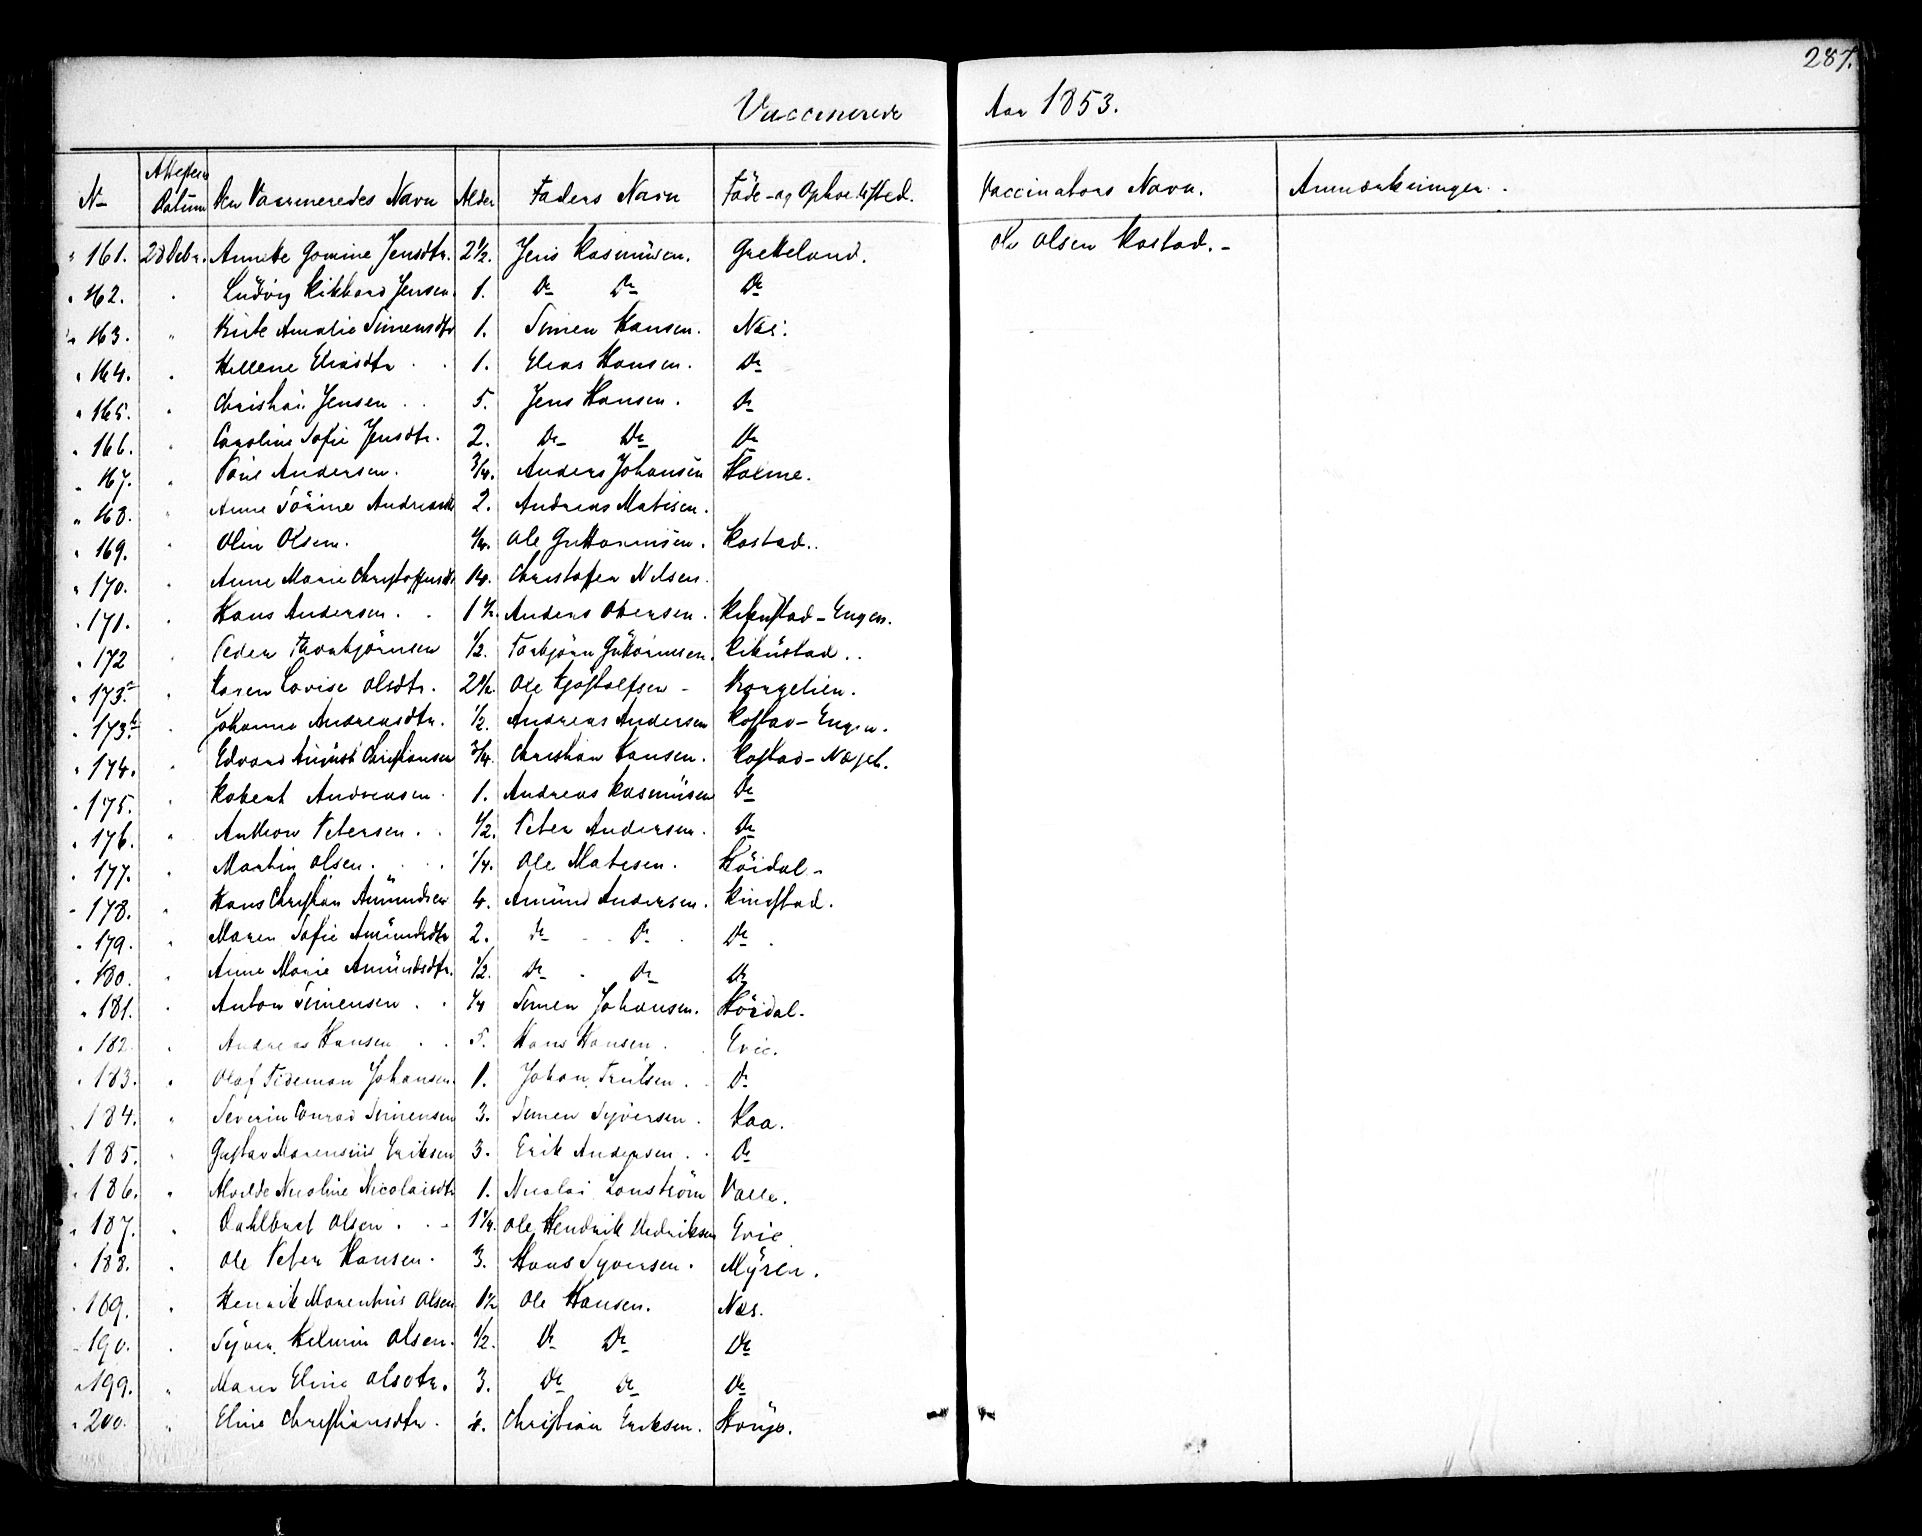 287.
Vaccinerede Aar 1853.
No Attestens Datum Den Vaccineredes Navn Alder Faders Navn Føde- og Opholdssted. Vaccinators Navn. Anmærkninger.
161. 28 Debr. Annete Gomine Jensdtr. 2 1/2. Jens Rasmüsen. Grekeland. Ole Olsen Rostad.
162. " Ludvig Rikhard Jensen. 1. Do Do Do
163. " Amalie Simensdtr 1. Simen Hansen. Næs.
164. " Hellene Eliasdtr 1. Elias Hansen. Do
165. " Christian Jensen 5. Jens Hansen. Do
166. " Caroline Sofie Jensdtr. 2. Do Do Do
167. " Andersen. 3/4. Anders Johansen Holme.
168. " Anne Andreasdtr 2. Andreas Matisen.
169. " Olin Olsen. 1/4. Ole Guttormsen. Rostad.
170. " Anne Marie Christoffersdtr 14. Christofer Nilsen.
171. " Hans Andersen. 1 1/2. Anders Olersen. Rikustad-Engen.
172 " Peder Thorbjörnsen 1/2. Torbjörn Gütormsen. Rikustad.
173.a " Karen Lovise Olsdtr. 2 1/2. Ole Kjostolfsen Korgelien.
173.b " Johanne Andreasdtr. 1/2. Andreas Andersen Rostad-Engen.
174. " Edvard August Christiansen 3/4. Christian Hansen. Rostad-
175. " Robert Andreasen. 1. Andreas Rasmüsen Do
176. " Anthon Petersen. 1/2. Peter Andersen. Do
177. " Martin Olsen. 1/4. Ole Matisen. Höidal
178. " Hans Christian Amündsen 4. Amünd Andersen. Ringstad.
179. " Maren Sofie Amündsdtr 2. Do Do Do
180. " Anne Marie Amündsdtr. 1/2. Do Do Do
181. " Anton Simensen 1/4 Simen Johansen. Höidal.
182 " Andreas Hansen 5. Hans Hansen. Evie.
183. " Olaf Tideman Johansen. 1. Johan Do
184. " Severin Conrad Simensen 3. Simen Syversen. Haa.
185. " Gustav Marensius Eriksen 3. Erik Andersen. Do
186. " Alvilde Nicoline Nicolaisdtr 1. Nicolai Lonström Valle.
187. " Dahlbert Olsen. 1 1/4. Ole Hendrik Hedriksen Evie.
188. " Ole Peter Hansen. 3. Hans Syversen. Myren.
189. " Henrik Marenthius Olsen 1 1/2 Ole Hansen. Næs.
190. " Syver Helmin Olsen. 1/2. Do Do Do
199. " Maren Eline Olsdtr. 3. Do Do Do
200. " Eline Christiansdtr. 4. Christian Eriksen.